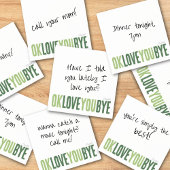 call your mom!
OKLOVEYOUBYE
Dinner tonight,
7pm
OKLOVEYOUBYE
OKLOVEYOUBYE
Have I told
you lately I
love you?
OKLOVEYOUBYE
Dinner tonight
7pm
wanna catch a
movie tonight?
call me!
OKLOVEYOUBYE
you're simply the
best!
OKLOVEYOUBYE